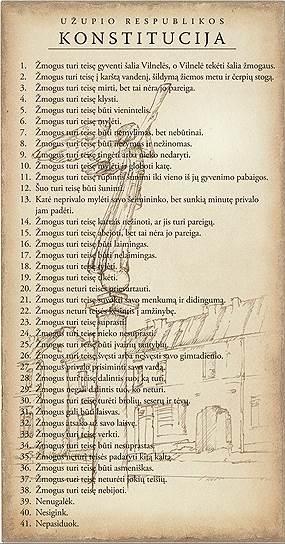 UŽUPIO RESPUBLIKOS
KONSTITUCIJA
1. Žmogus turi teisę gyventi šalia Vilnelės, o Vilnelė tekėti šalia žmogaus.
2. Žmogus turi teisę į karštą vandenį, šildymą žiemos metu ir čerpių stogą.
3. Žmogus turi teisę mirti, bet tai nėra jo pareiga.
4. Žmogus turi teisę klysti.
5. Žmogus turi teisę būti vienintelis.
6. Žmogus turi teisę mylėti.
7. Žmogus turi teisę būti nemylimas, bet nebūtinai.
8. Žmogus turi teisę būti nežymus ir nežinomas.
9. Žmogus turi teisę tingėti arba nieko nedaryti.
10. Žmogus turi teisę mylėti ir globoti katę.
11. Žmogus turi teisę rūpintis šunimi iki vieno iš jų gyvenimo pabaigos.
12. Šuo turi teisę būti šunimi.
13. Katė neprivalo mylėti savo šeimininko, bet sunkią minutę privalo
jam padėti.
14. Žmogus turi teisę kartais nežinoti, ar jis turi pareigų.
15. Žmogus turi teisę abejoti, bet tai nėra jo pareiga.
16. Žmogus turi teisę būti laimingas.
17. Žmogus turi teisę būti nelaimingas.
18. Žmogus turi teisę tylėti.
19. Žmogus turi teisę tikėti.
20. Žmogus neturi teisės prievartauti.
21. Žmogus turi teisę suvokti savo menkumą ir didingumą.
22. Žmogus neturi teisės kėsintis į amžinybę.
23. Žmogus turi teisę suprasti.
24. Žmogus turi teisę nieko nesuprasti.
25. Žmogus turi teisę būti įvairių tautybių.
26. Žmogus turi teisę švęsti arba nešvęsti savo gimtadienio.
27. Žmogus privalo prisiminti savo vardą.
28. Žmogus turi teisę dalintis tuo, ką turi.
29. Žmogus negali dalintis tuo, ko neturi.
30. Žmogus turi teisę turėti brolių, seserų ir tėvų.
31. Žmogus gali būti laisvas.
32. Žmogus atsako už savo laisvę.
33. Žmogus turi teisę verkti.
34. Žmogus turi teisę būti nesuprastas.
35. Žmogus neturi teisės padaryti kitą kaltą.
36. Žmogus turi teisę būti asmeniškas.
37. Žmogus turi teisę neturėti jokių teisių.
38. Žmogus turi teisę nebijoti.
39. Nenugalėk.
40. Nesigink.
41. Nepasiduok.